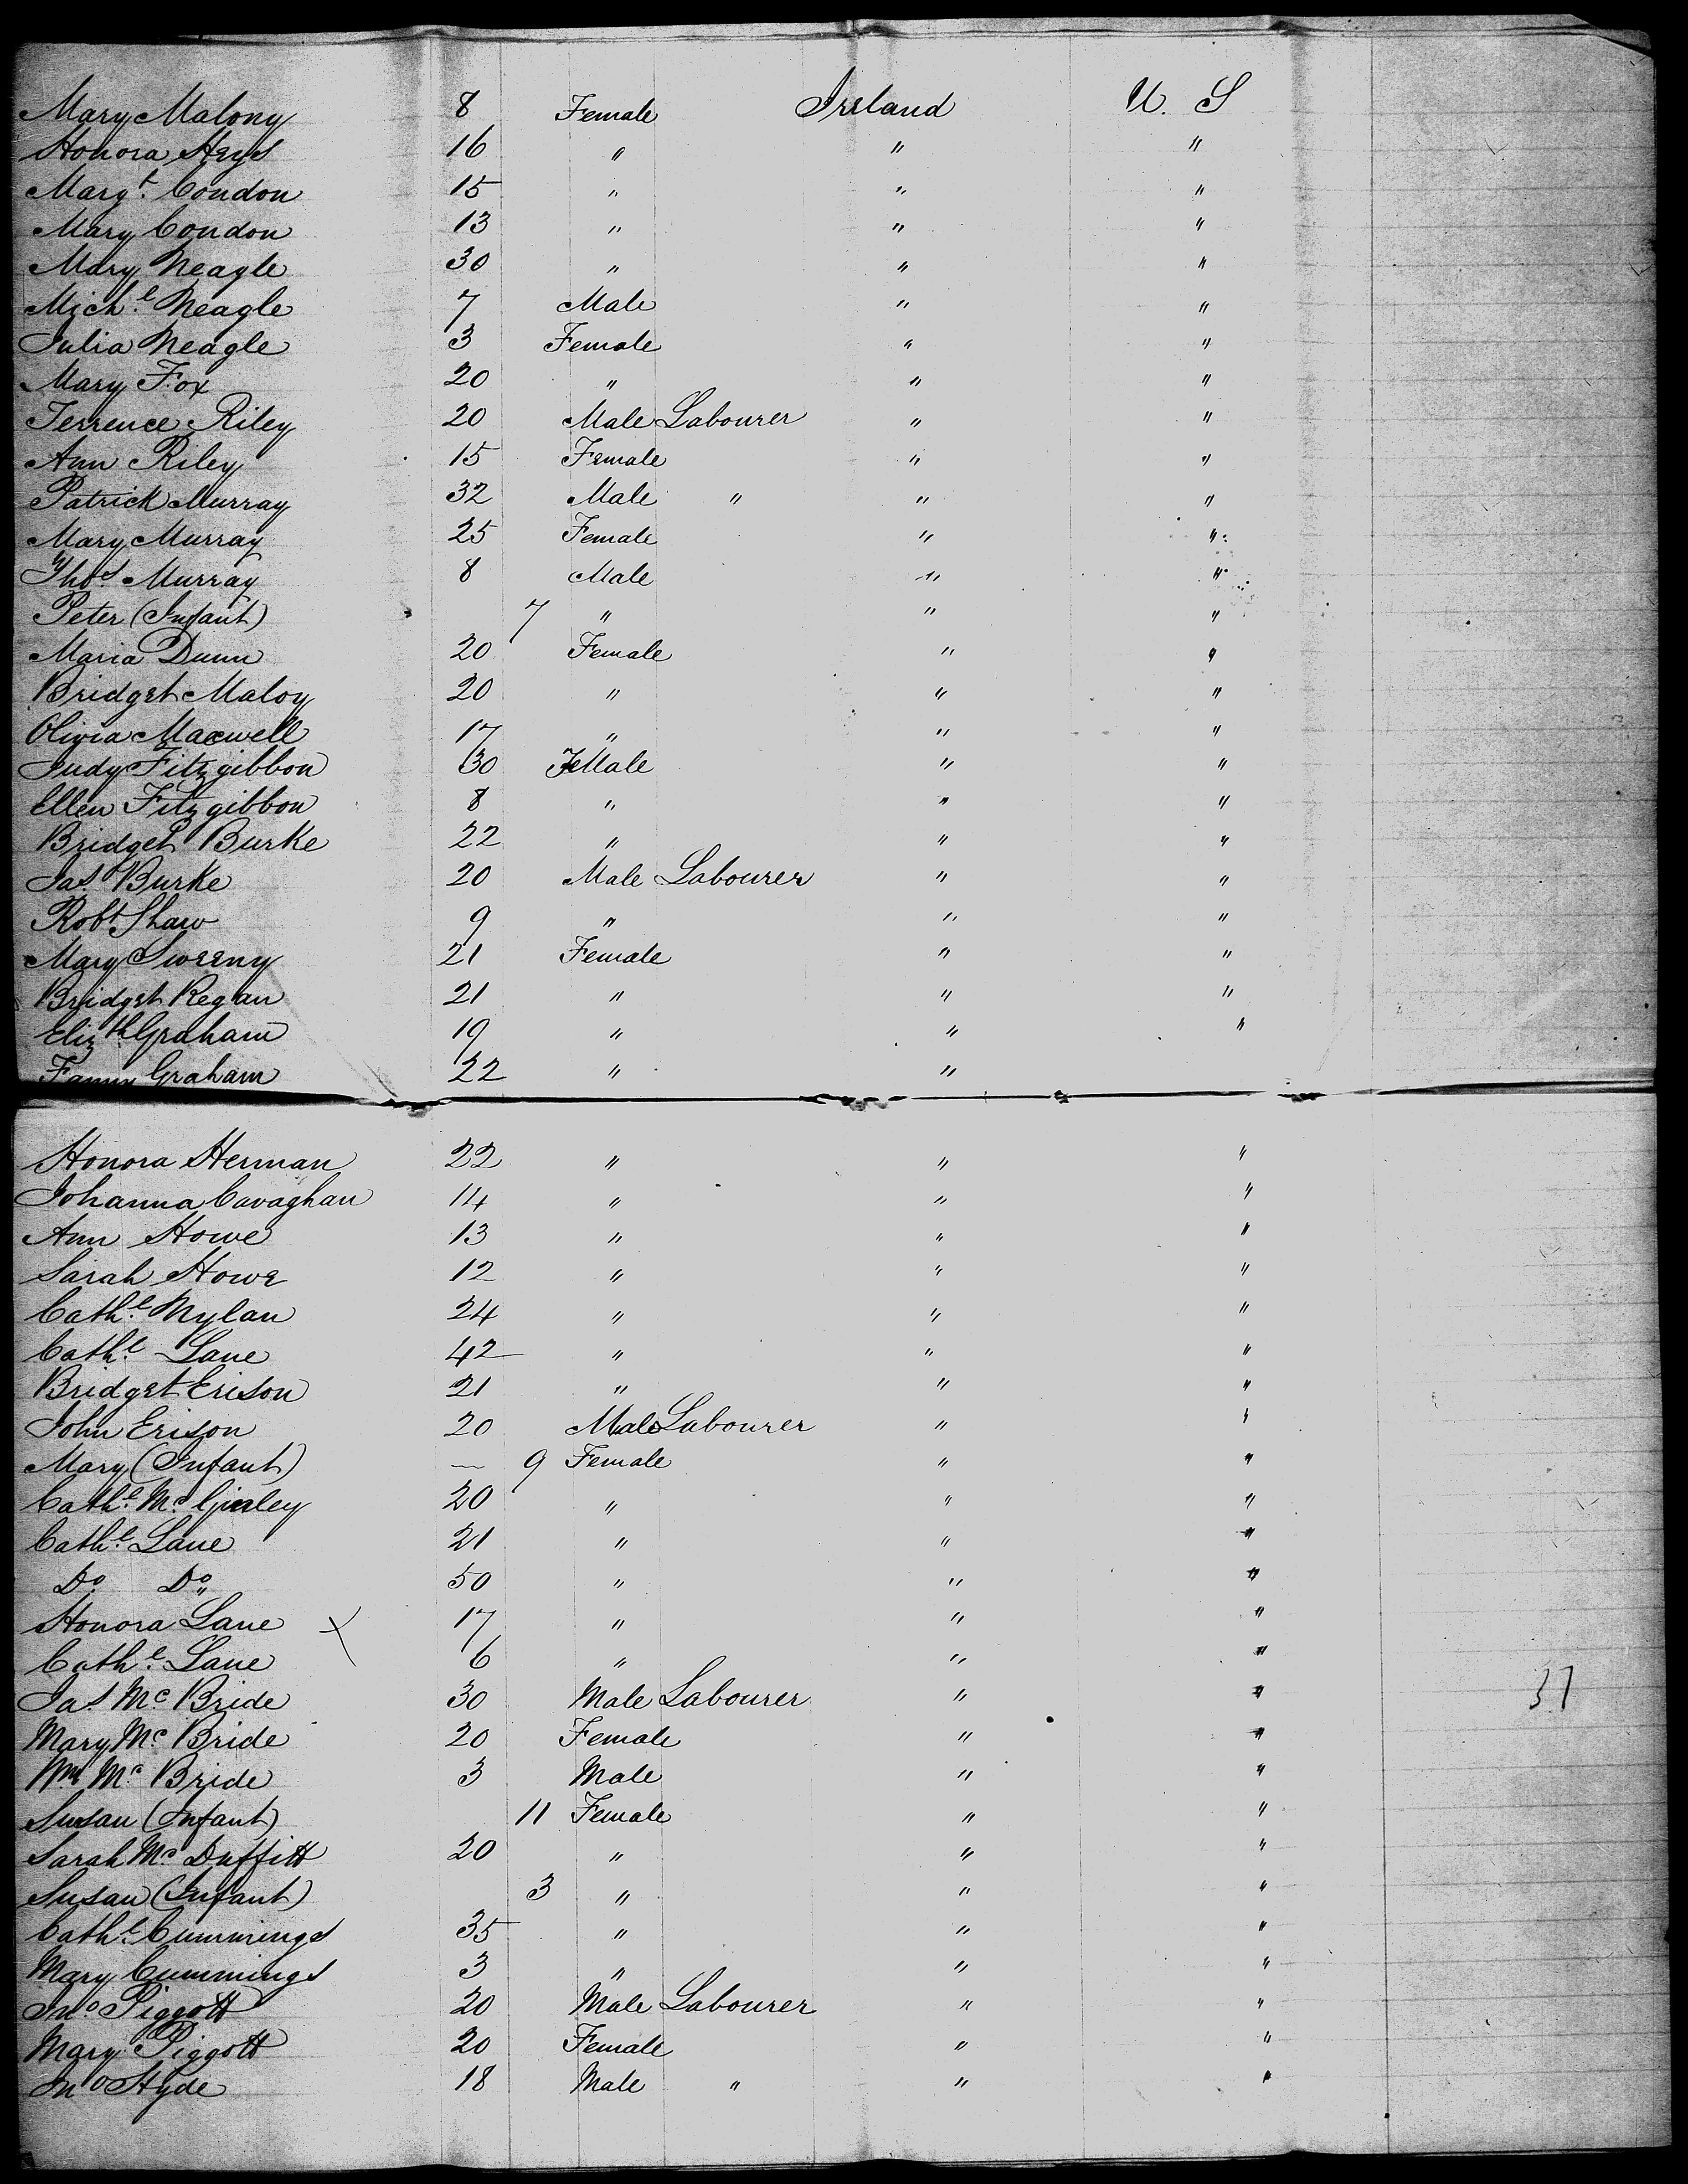 Mary Malony 8 Female Ireland U. S
Honora Heys 16 " " "
Margt. Condon 15 " " "
Mary Condon 13 " " "
Mary Neagle 30 " " "
Michl. Neagle 7 Male " "
Julia Neagle 3 Female " "
Mary Fox 20 " " "
Terrence Riley 20 Male Labourer " "
Ann Riley 15 Female " "
Patrick Murray 32 Male " " "
Mary Murray 25 Female " "
Thos. Murray 8 Male " "
Peter (Infant) 7 " " "
Maria Dunn 20 Female " "
Bridget Maloy 20 " " "
Olivia Maxwell 17 " " "
Judy Fitzgibbon 30 FeMale " "
Ellen Fitzgibbon 8 " " "
Bridget Burke 22 " " "
Jas. Burke 20 Male Labourer " "
Robt Shaw 9 " " "
Mary Sweeny 21 Female " "
Bridget Regan 21 " " "
Elizth Graham 19 " " "
Fanny Graham 22 " "
Honora Herman 22 " " "
Johanna Cavaghan 14 " " "
Ann Howe 13 " " "
Sarah Howe 12 " " "
Cathe. Nylan 24 " " "
Cathe. Lane 42 " " "
Bridget Erison 21 " " "
John Erison 20 Male Labourer " "
Mary (Infant) — 9 Female " "
Cathe. Mc Ginley 20 " " "
Cathe. Lane 21 " " "
Do. Do. 50 " " "
Honora Lane X 17 " " "
Cathe. Lane 6 " " "
Jas. Mc Bride 30 Male Labourer " " 37
Mary Mc Bride 20 Female " "
Wm Mc Bride 3 Male " "
Susan (Infant) 11 Female " "
Sarah Mc Duffitt 20 " " "
Susan (Infant) 3 " " "
Cathe. Cummings 35 " " "
Mary Cummings 3 " " "
Jno. Piggott 20 Male Labourer " "
Mary Piggott 20 Female " "
Jno Hyde 18 Male " " "